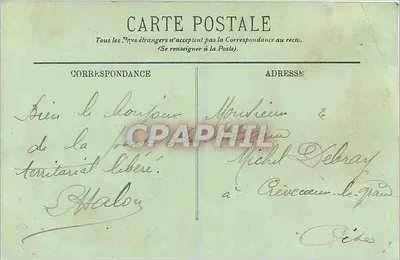 CARTE POSTALE
Tous les Pays étrangers n'acceptent pas la Correspondance au recto.
(Se renseigner à la Poste).
CORRESPONDANCE
ADRESSE
Bien le bonjour
de la
territorial libéré.
Monsieur
Michel Debray
à Crèvecoeur-le-grand
Oise
CPAPHIL